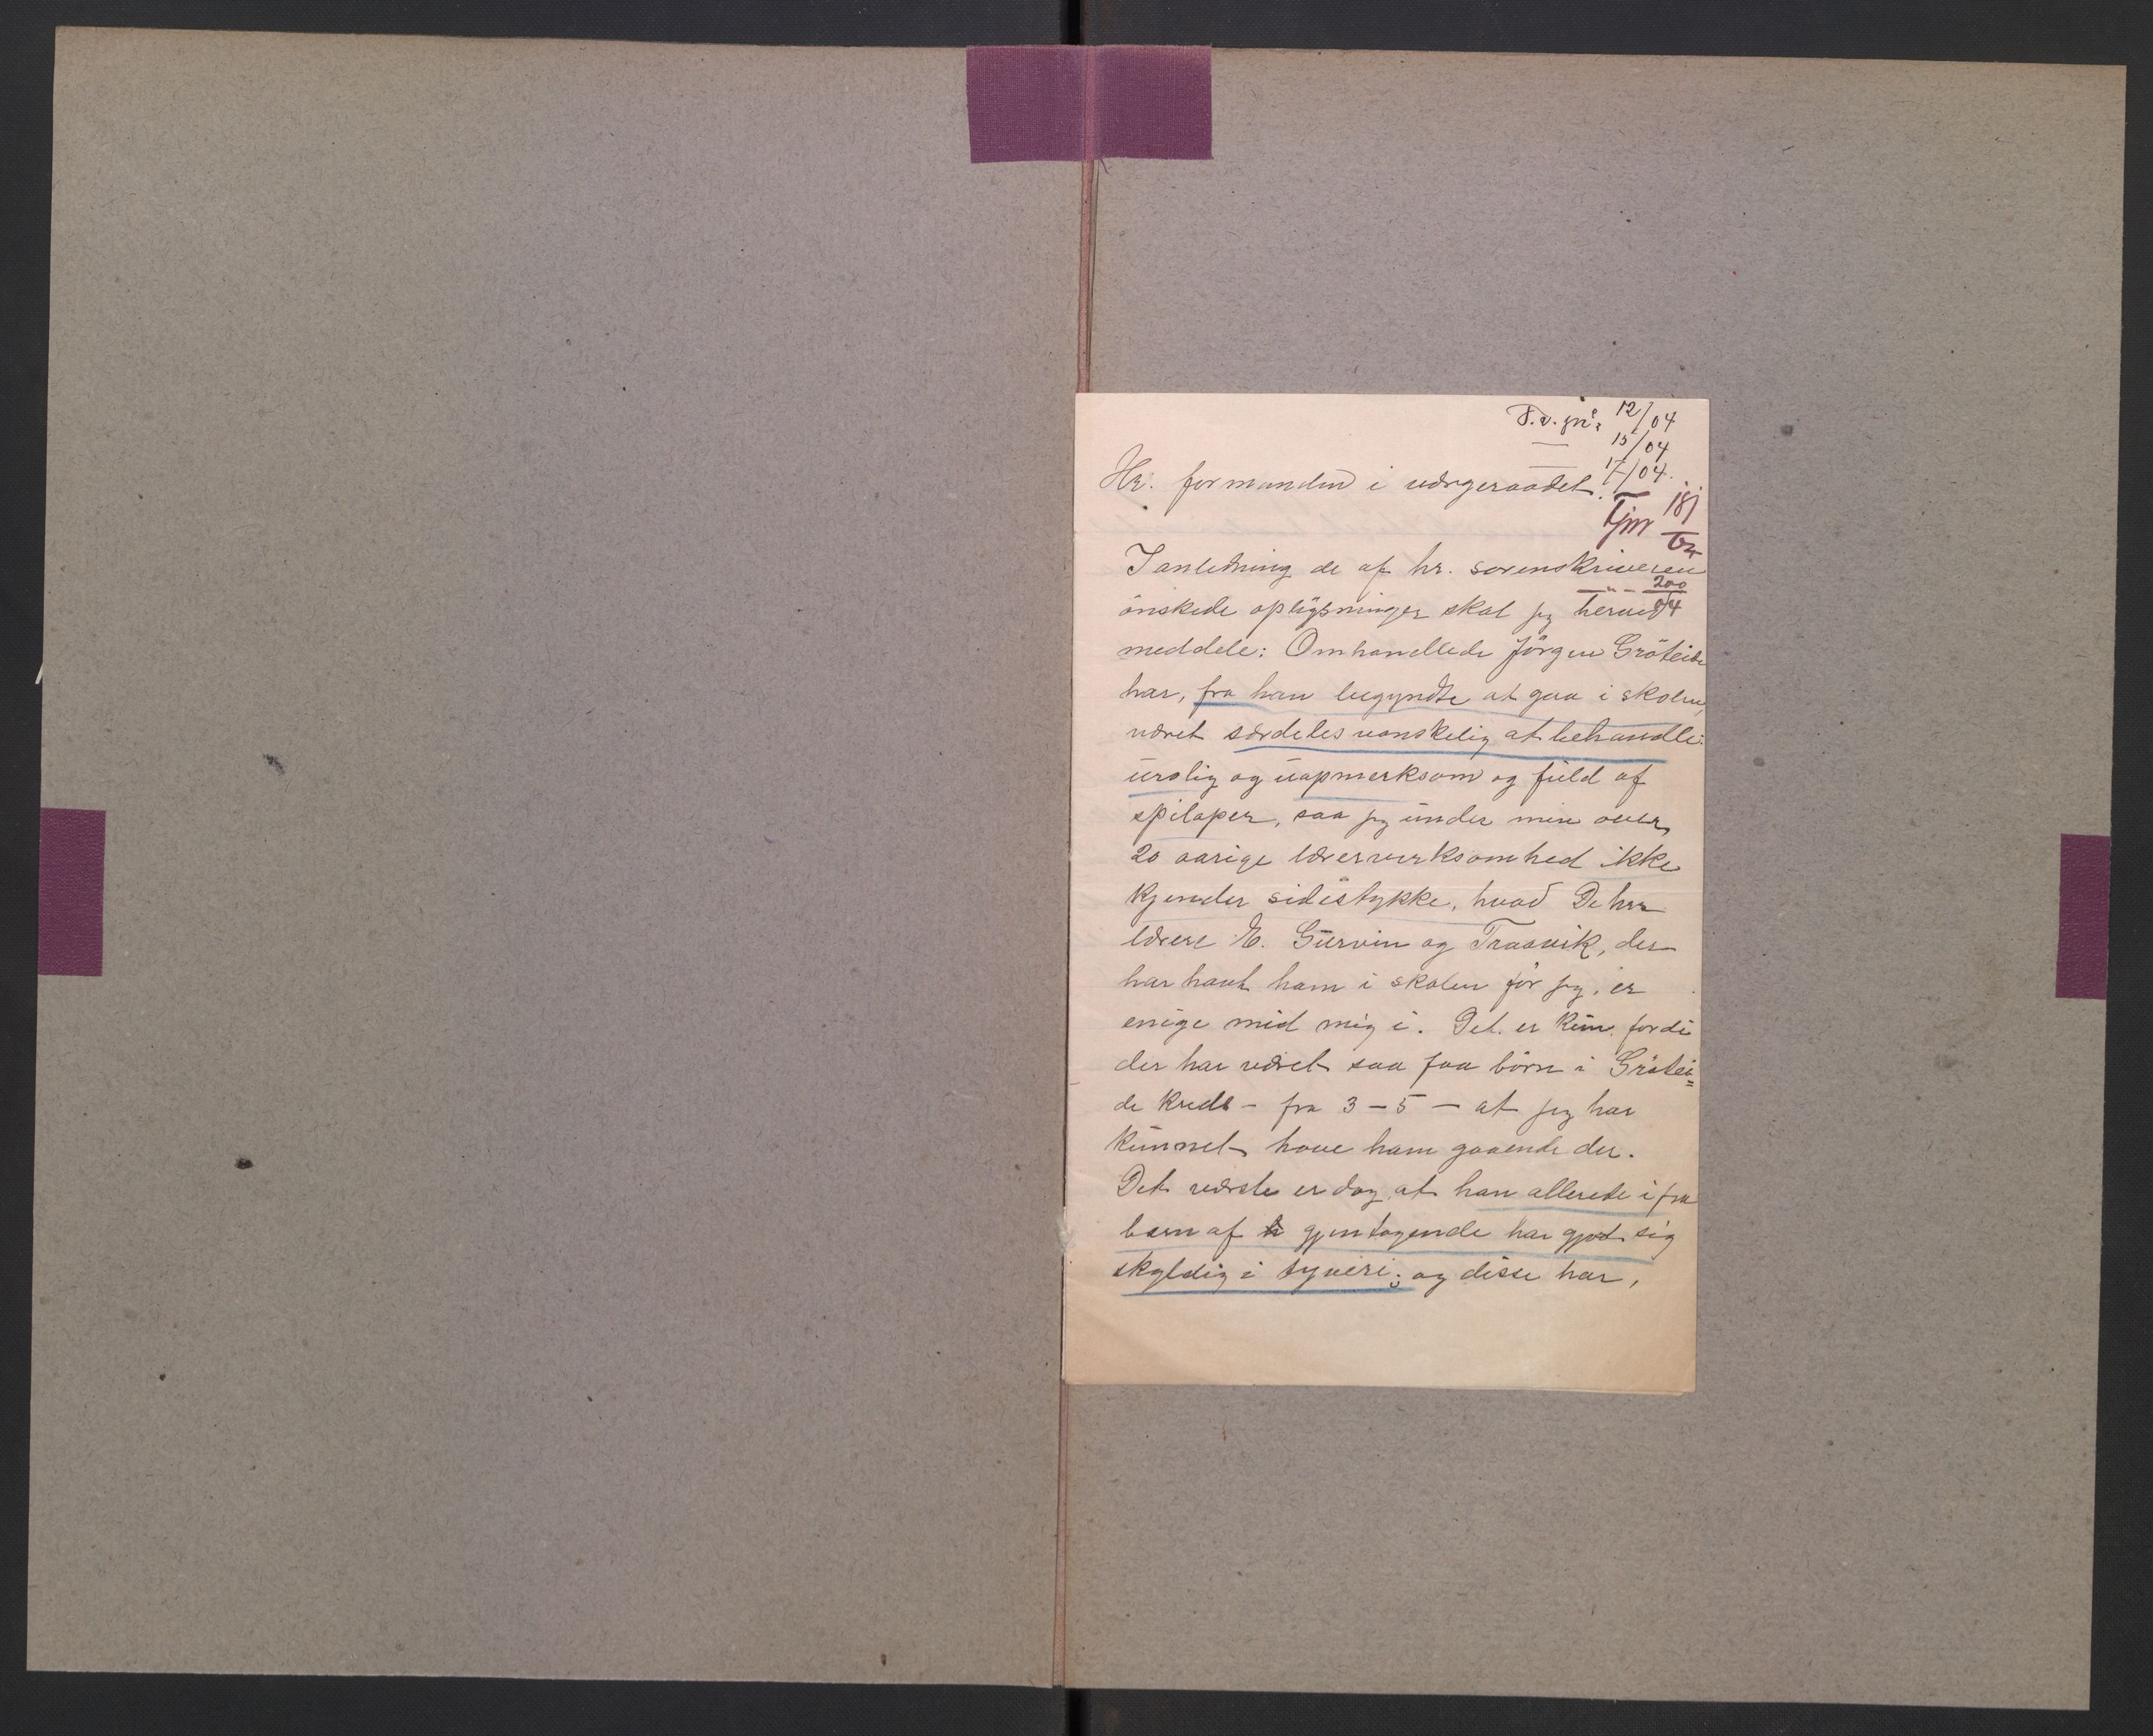 12/04
15/04
17/04.
Hr. formanden i værgeraadet.
181
I anledning de af hr. sorenskriveren
200
04
önskede oplysninger skal jeg herved
meddele: Omhandlede Jörgen Gröteide
har, fra han begyndte at gaa i skolen,
været særdeles vanskelig at behandle:
urolig og uopmerksom og fuld af
spiloper, saa jeg under min over
20 aarige lærervirksomhed ikke
kjender sidestykke, hvad De hrr
lærere E. Gurvin og Traavik, der
har havt ham i skolen för jeg, er
enige med mig i. Det er kun fordi
der har været saa faa börn i Grötei=
de kreds – fra 3 – 5 – at jeg har
kunnet have ham gaaende der.
Det værste er dog, at han allerede i fra
barn af gjentagende har gjort sig
skyldig i tyveri; og disse har,